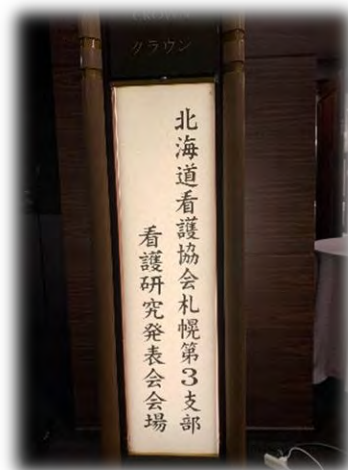 CROWN
クラウン
北海道看護協会札幌第3支部
看護研究発表会会場